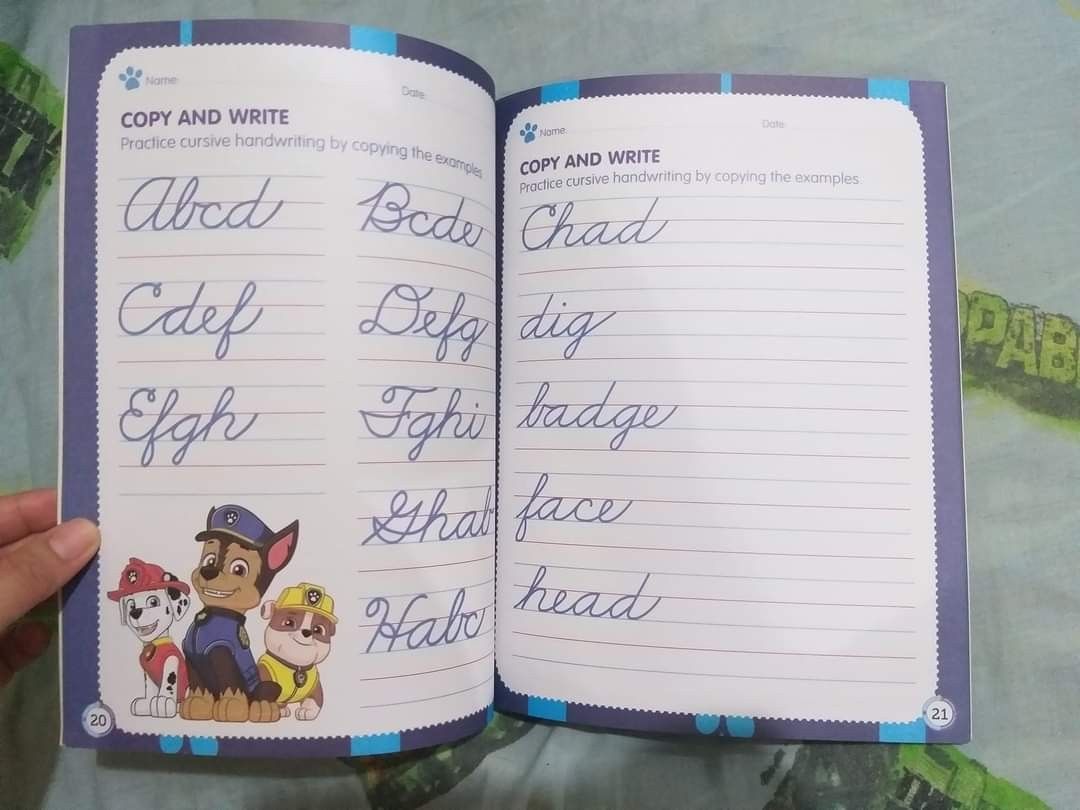 Name:
Date:
COPY AND WRITE
Practice cursive handwriting by copying the examples.
Abcd
Bcde
Cdef
Defg
Efgh
Fghi
Ghab
Habc
20
Name:
Date:
COPY AND WRITE
Practice cursive handwriting by copying the examples.
Chad
dig
badge
face
head
21